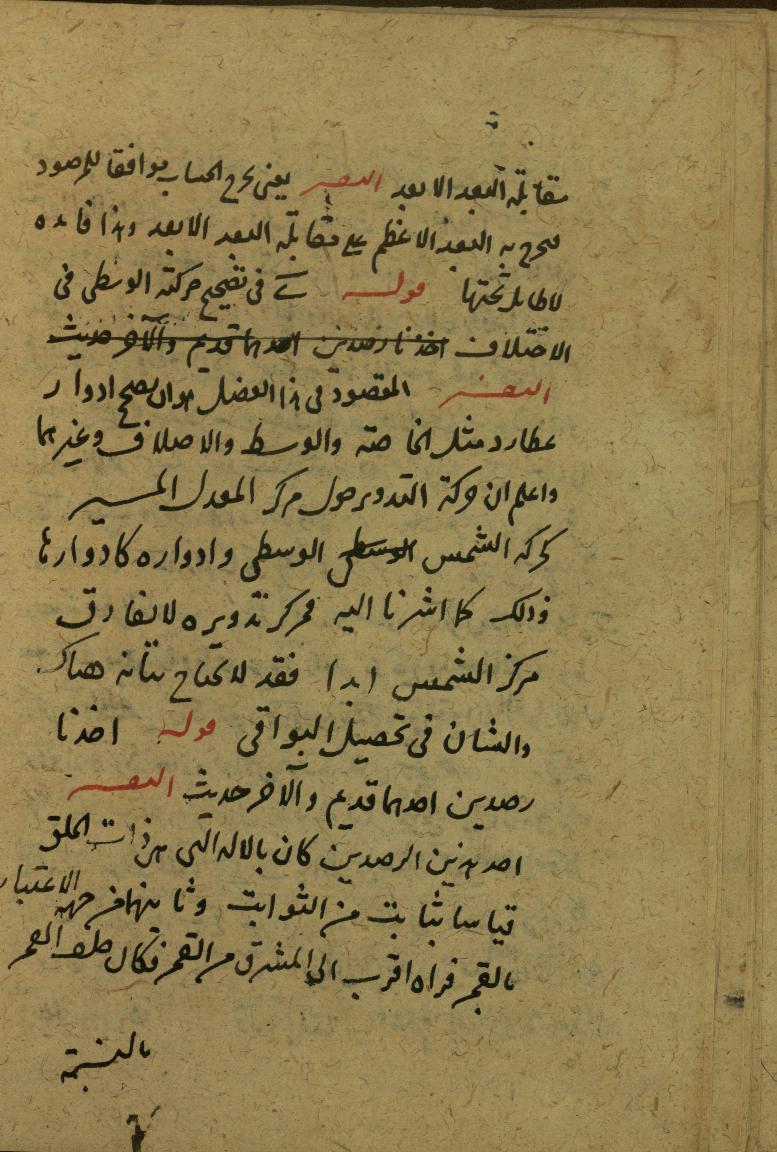 مقابلة البعد الابعد التفسير يعنى يخرج الحساب موافقا للمرصود
فيخرج به البعد الاعظم على مقابلة البعد الابعد وهذا قاعده
لاطايل تحتها قوله فى تصحيح حركته الوسطى فى
الاختلاف اخذنا رصدين احدهما قديم والآخر حديث
التفسير المقصود فى هذا الفصل هو ان يصحح ادوار
عطارد مثل الخاصة والوسط والاختلاف وغيرهما
واعلم ان حركة التدوير حول مركز المعدل المسير
كحركة الشمس الوسطى الوسطى وادواره كادوارها
وذلك كما اشرنا اليه فمركز تدويره لايفارق
مركز الشمس ابدا فقد لا يحتاج بيانه هناك
والشان فى تحصيل البواقى قوله اخذنا
رصدين احدهما قديم والآخر حديث التفسير
احد هذين الرصدين كان بالالة التى هى ذات الحلق
قياسا بثابت من الثوابت وثانيهما من جهة الاعتبار
بالقمر فراه اقرب الى المشرق من القمر فكان خلف القمر
بالنسبة